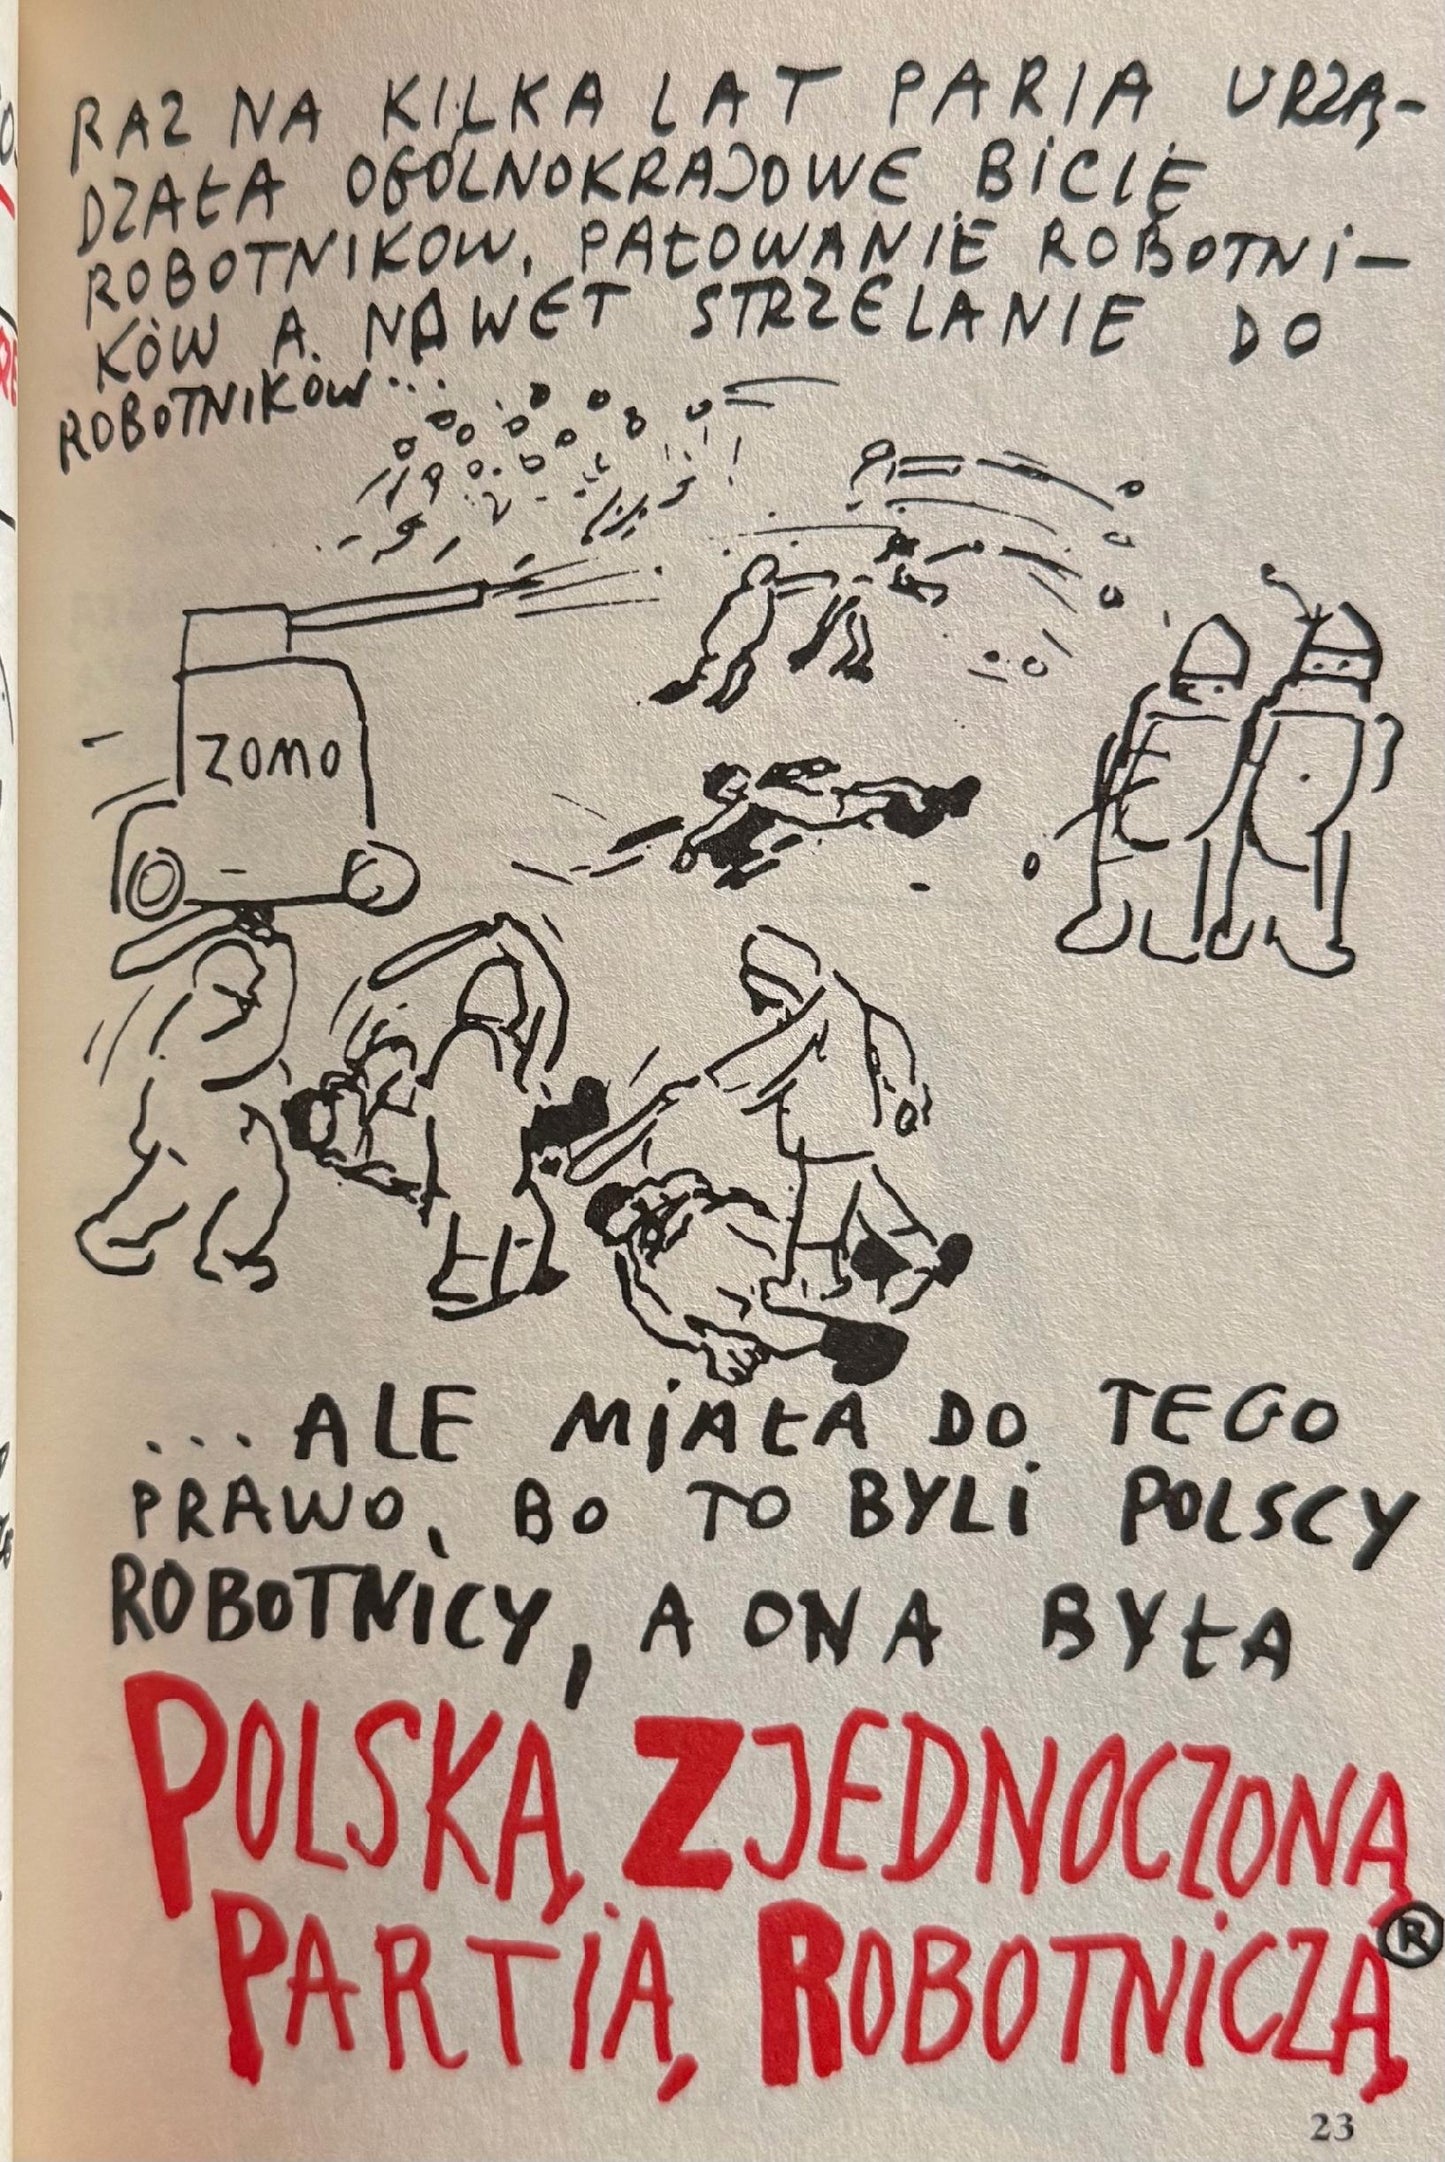 RAZ NA KILKA LAT PARIA URZĄ-
DZAŁA OGÓLNOKRAJOWE BICIE
ROBOTNIKÓW, PAŁOWANIE ROBOTNI-
KÓW A NAWET STRZELANIE DO
ROBOTNIKÓW...
ZOMO
...ALE MIAŁA DO TEGO
PRAWO, BO TO BYLI POLSCY
ROBOTNICY, A ONA BYŁA
POLSKĄ ZJEDNOCZONĄ
PARTIĄ ROBOTNICZĄ ®
23